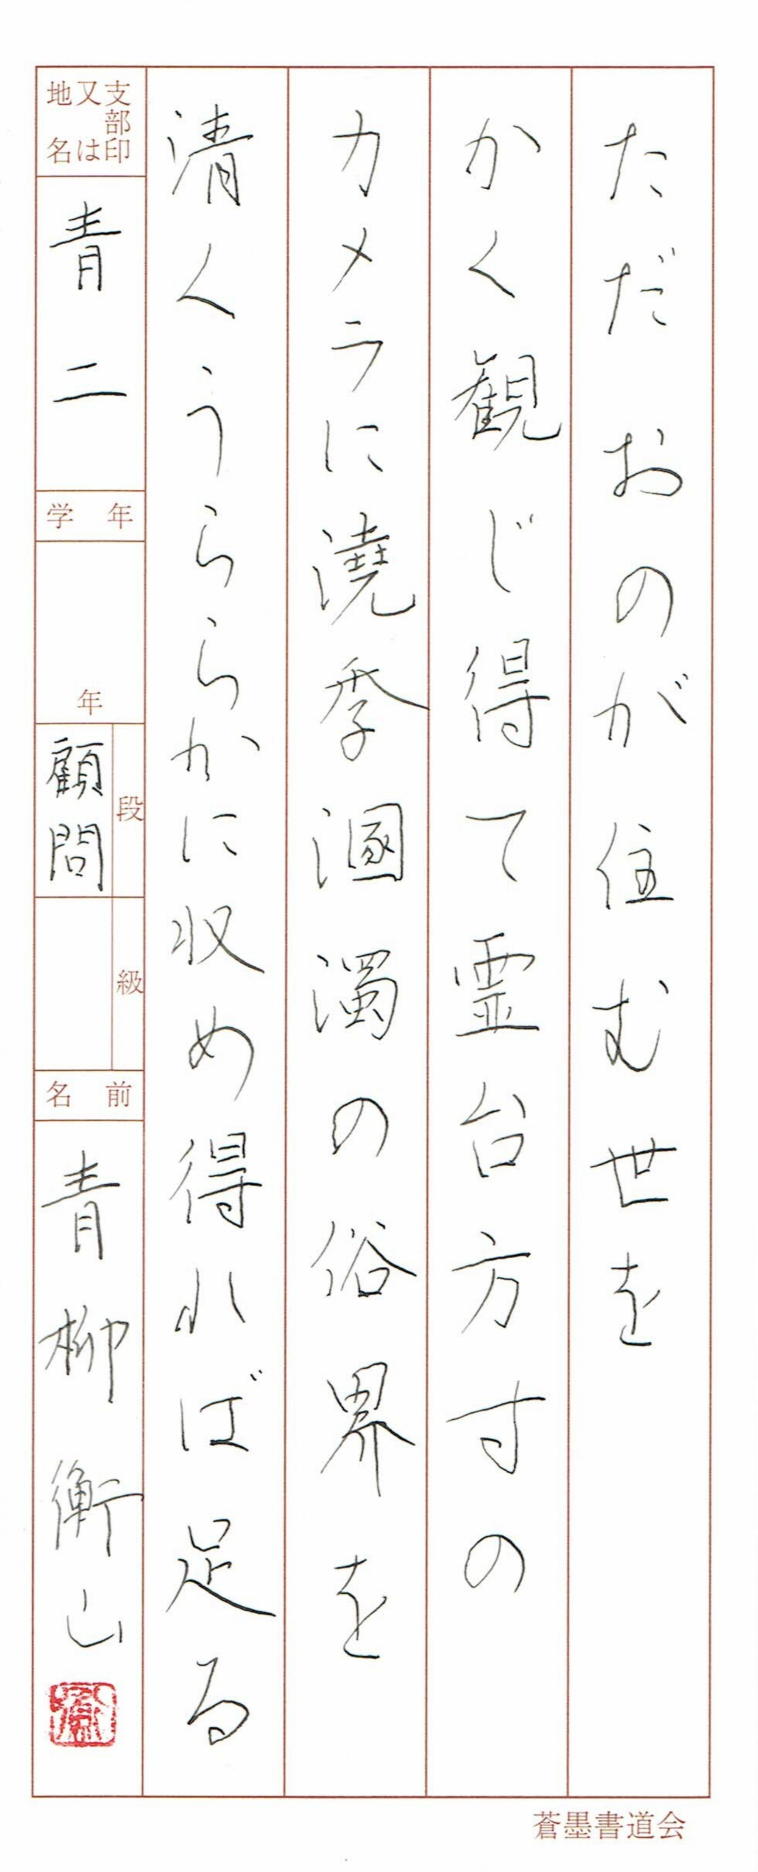 ただおのが住む世を
かく観じ得て霊台方寸の
カメラに澆季溷濁の俗界を
清くうららかに収め得れば足る
支部印又は地名
青二
学年
年
段
顧問
級
名前
青柳衡山
蒼墨書道会